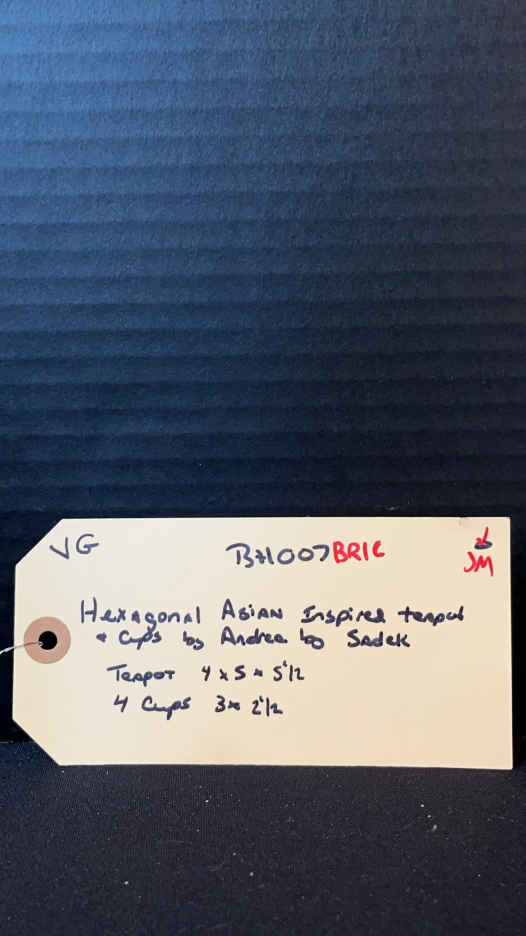 VG
BH007BRIC
JM
Hexagonal Asian Inspired teapot
& Cups by Andrea by Sadek
Teapot 4 x 5 x 5 1/2
4 Cups 3 x 2 1/2